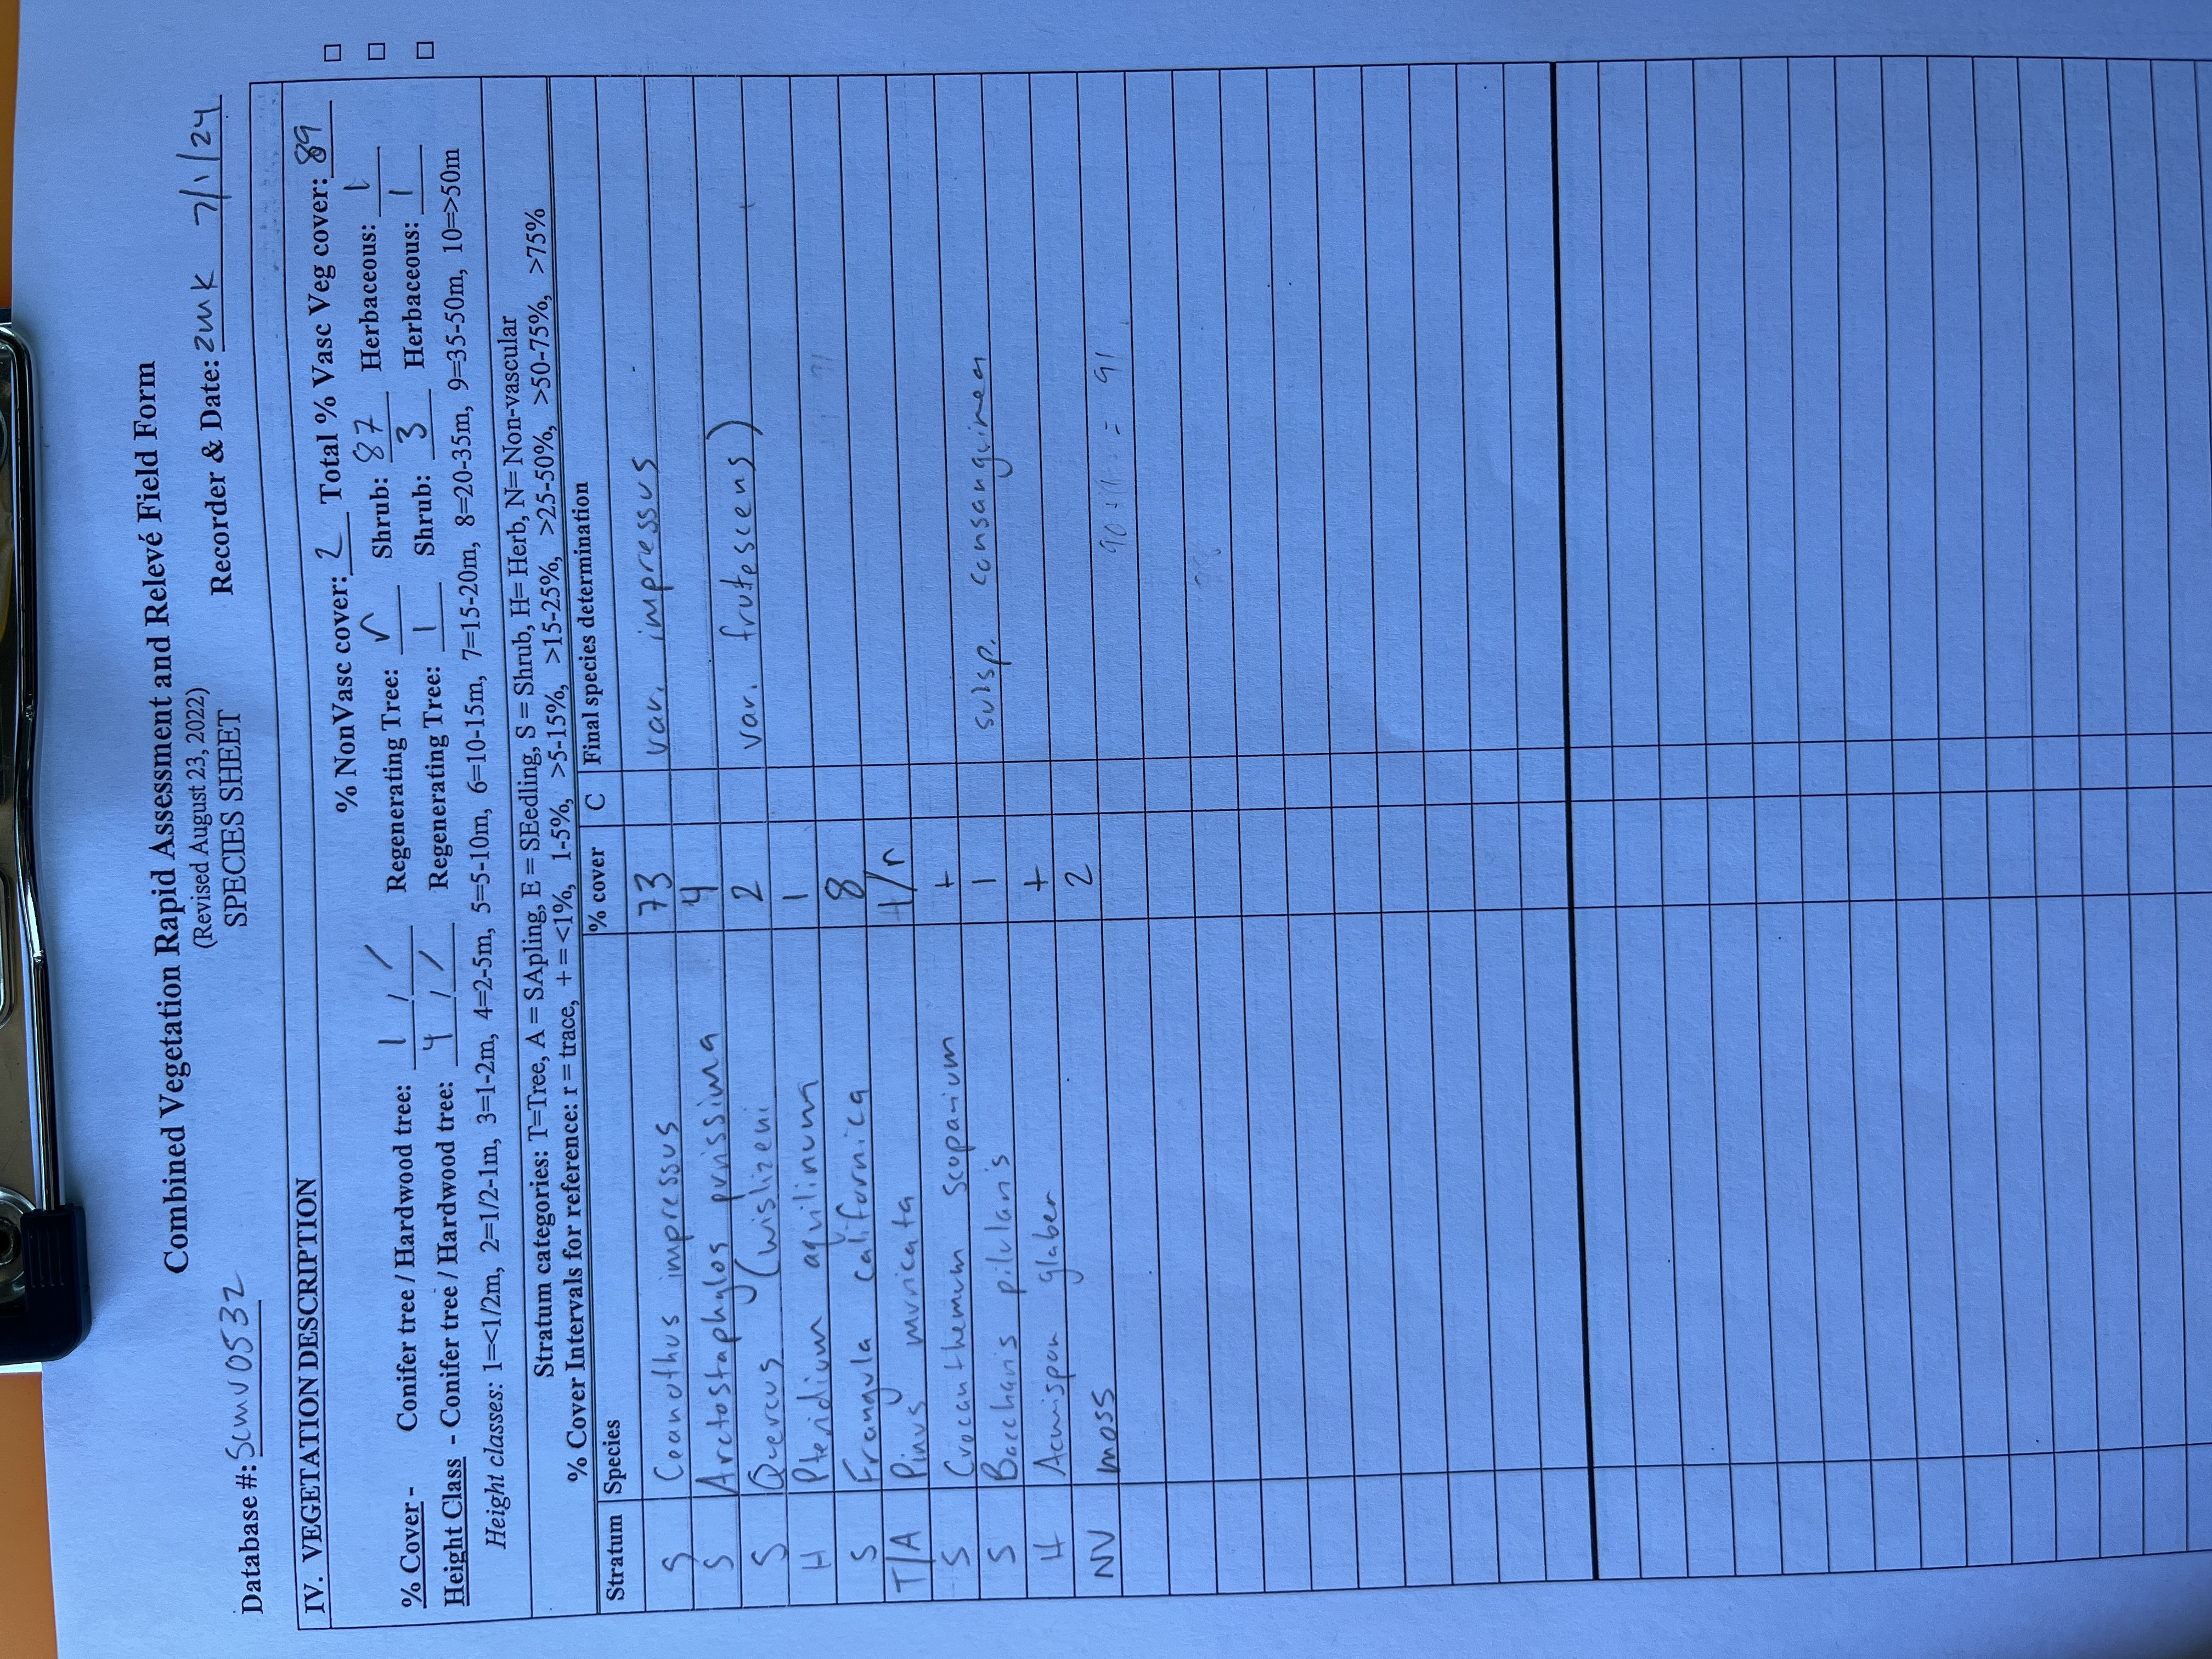 Combined Vegetation Rapid Assessment and Relevé Field Form
(Revised August 23, 2022)
SPECIES SHEET
Database #: SCMV0532 Recorder & Date: ZMK 7/1/24
IV. VEGETATION DESCRIPTION
% NonVasc cover: 2 Total % Vasc Veg cover: 89
% Cover - Conifer tree / Hardwood tree: 1 / / Regenerating Tree: r Shrub: 87 Herbaceous: 1
Height Class - Conifer tree / Hardwood tree: 4 / / Regenerating Tree: 1 Shrub: 3 Herbaceous: 1
Height classes: 1=<1/2m, 2=1/2-1m, 3=1-2m, 4=2-5m, 5=5-10m, 6=10-15m, 7=15-20m, 8=20-35m, 9=35-50m, 10=>50m
Stratum categories: T=Tree, A = SApling, E = SEedling, S = Shrub, H= Herb, N= Non-vascular
% Cover Intervals for reference: r = trace, + = <1%, 1-5%, >5-15%, >15-25%, >25-50%, >50-75%, >75%
Stratum Species % cover C Final species determination
S Ceanothus impressus 73 var. impressus
S Arctostaphylos purissima 4
S Quercus (wislizeni 2 var. frutescens)
H Pteridium aquilinum 1
S Frangula californica 8
T/A Pinus muricata /r
S Crocanthemum scoparium +
S Baccharis pilularis 1 subsp. consanguinea
H Acmispon glaber +
NV moss 2
= 91